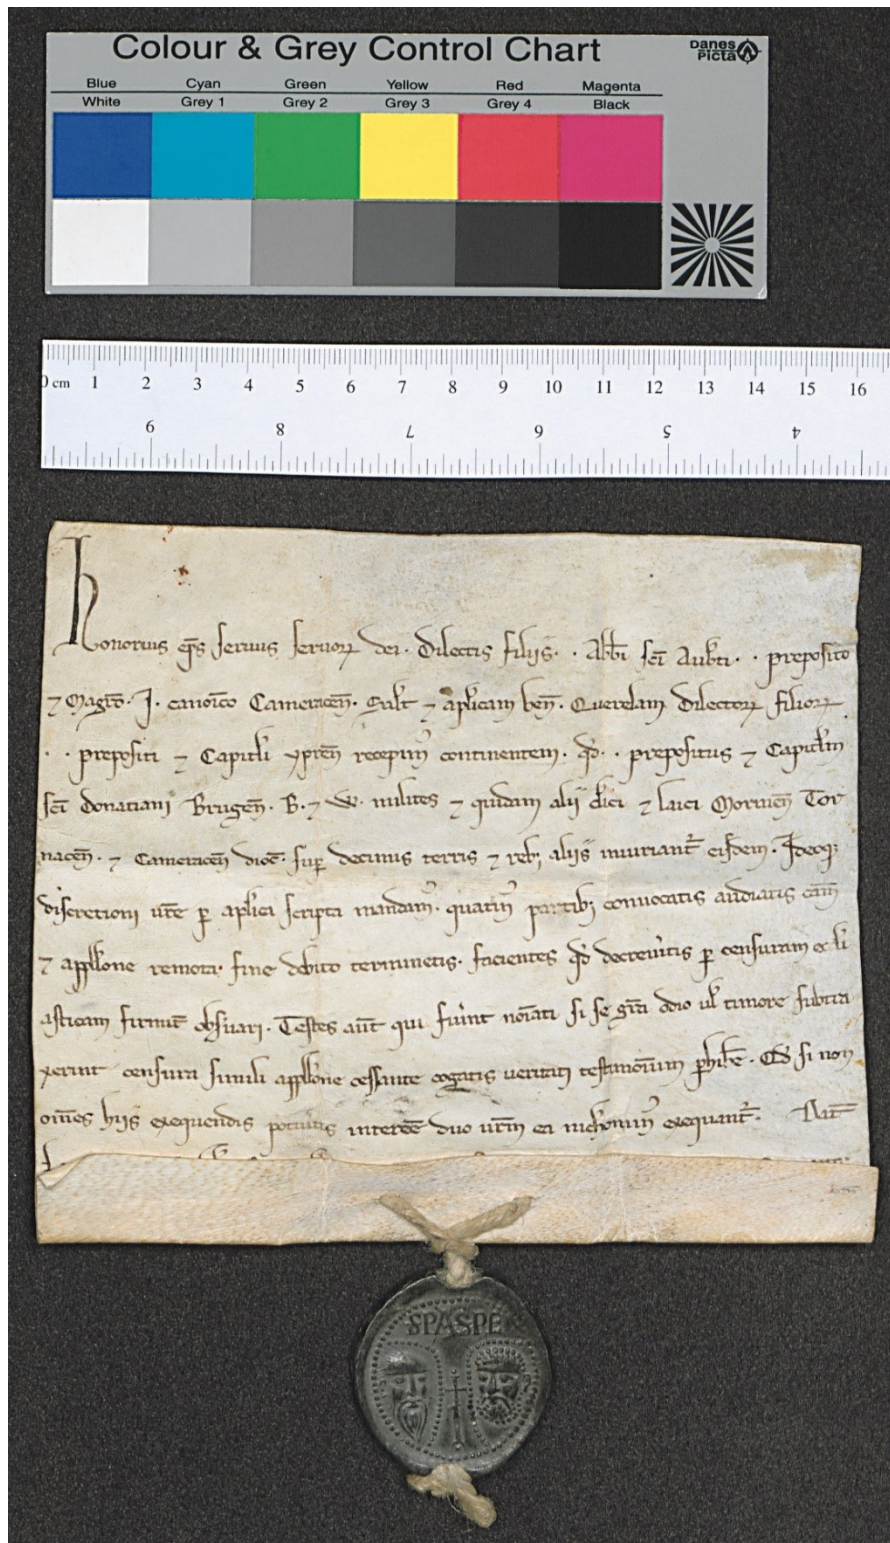 Colour & Grey Control Chart
Danes
Picta
Blue Cyan Green Yellow Red Magenta
White Grey 1 Grey 2 Grey 3 Grey 4 Black
0 cm 1 2 3 4 5 6 7 8 9 10 11 12 13 14 15 16
9 8 7 6 5 4
Honorius ep̄s seruus seruoꝝ dei. Dilectis filijs. . . Abb̄i sc̄i Auƀti. . . preposito
⁊ Magr̄o. J. canoīco Cameracen̄. Sal̄t ⁊ ap̄licam ben̄. Querelam dilectoꝝ filioꝝ
. . prepositi ⁊ Capitl̄i ypren̄ recepimꝰ continentem. qd̄. . prepositus ⁊ Capitl̄m
sc̄i donatiani Brugen̄. B. ⁊ W. milites ⁊ quidam alij cl̄ici ⁊ laici Morinen̄ Tor
nacen̄. ⁊ Cameracen̄ dioc̄. sup̄ decimis terris ⁊ rebꝫ alijs iniuriant̄ eisdem. Ideoqꝫ
discretioni ur̄e ꝑ ap̄lica scripta mandamꝰ. quatinꝰ partibꝫ conuocatis audiatis cām
⁊ appl̄lone remota. fine debito terminetis. facientes qd̄ decreu̓itis ꝑ censuram eccl̄i
asticam firmit̄ obs̓uari. Testes aūt qui fu̓int noīati si se gr̄a odio ul̄ timore subtra
xerint censura simili appl̄lone cessante cogatis ueritati testimonium ꝑhib̄e. Qd̄ si non
om̄es hijs exequendis potu̓itis interēe duo ur̄m ea nichomīnꝰ exequant̄. Dat̄
SPASPE